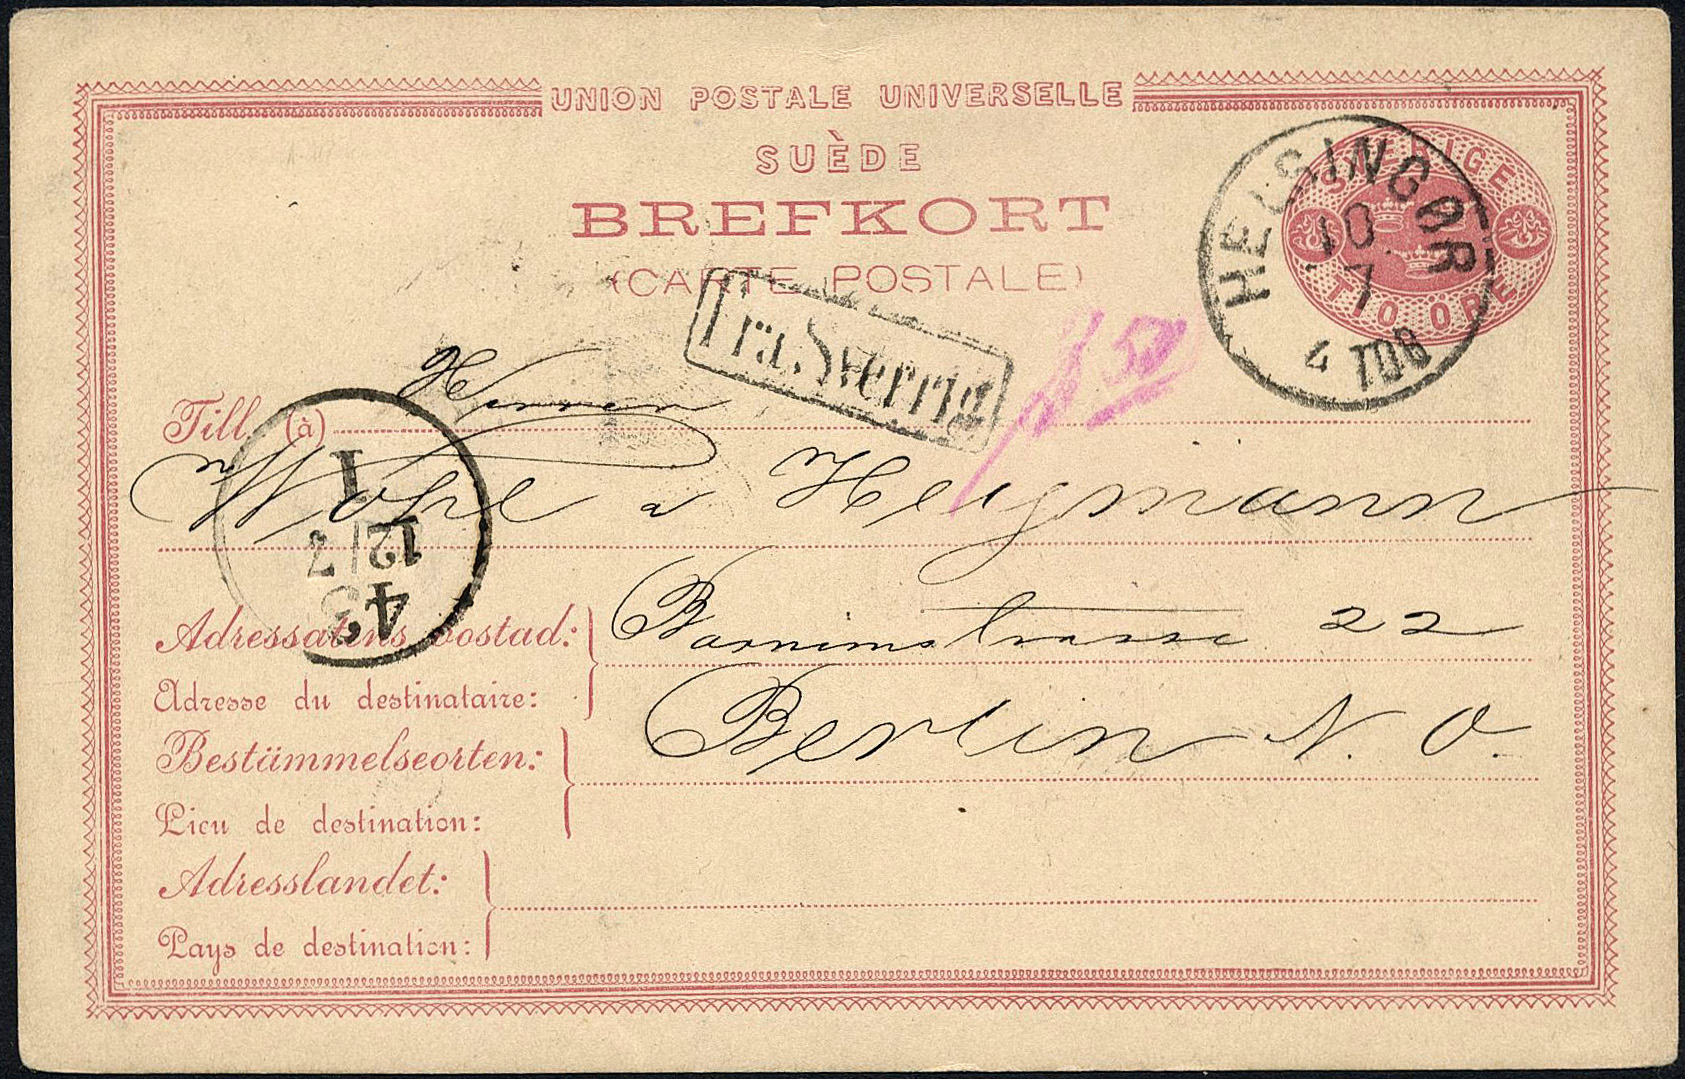 UNION POSTALE UNIVERSELLE
SUÈDE
BREFKORT
(CARTE POSTALE)
SVERIGE
TIO ÖRE
HELSINGØR
10
7
4 TOG
Fra Sverrig
Till (à) Herren
Wope & Hegmann
1
12/7
43
Adressatens bostad: Barnimstrasse 22
Adresse du destinataire:
Bestämmelseorten: Berlin N. O.
Lieu de destination:
Adresslandet:
Pays de destination: